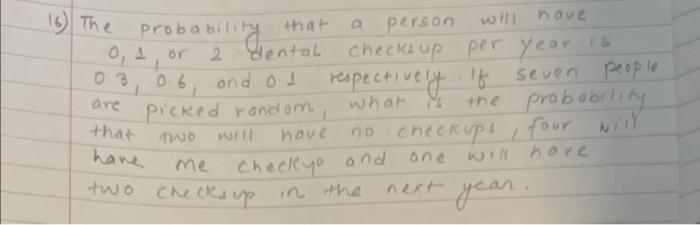 16) The probability that a person will have
0, 1, or 2 dental checksup per year is
0 3, 0.6, and 0.1 respectively. If seven people
are picked random, what is the probability
that two will have no checkups, four will
have me checkyo and one will have
two checksup in the next year.